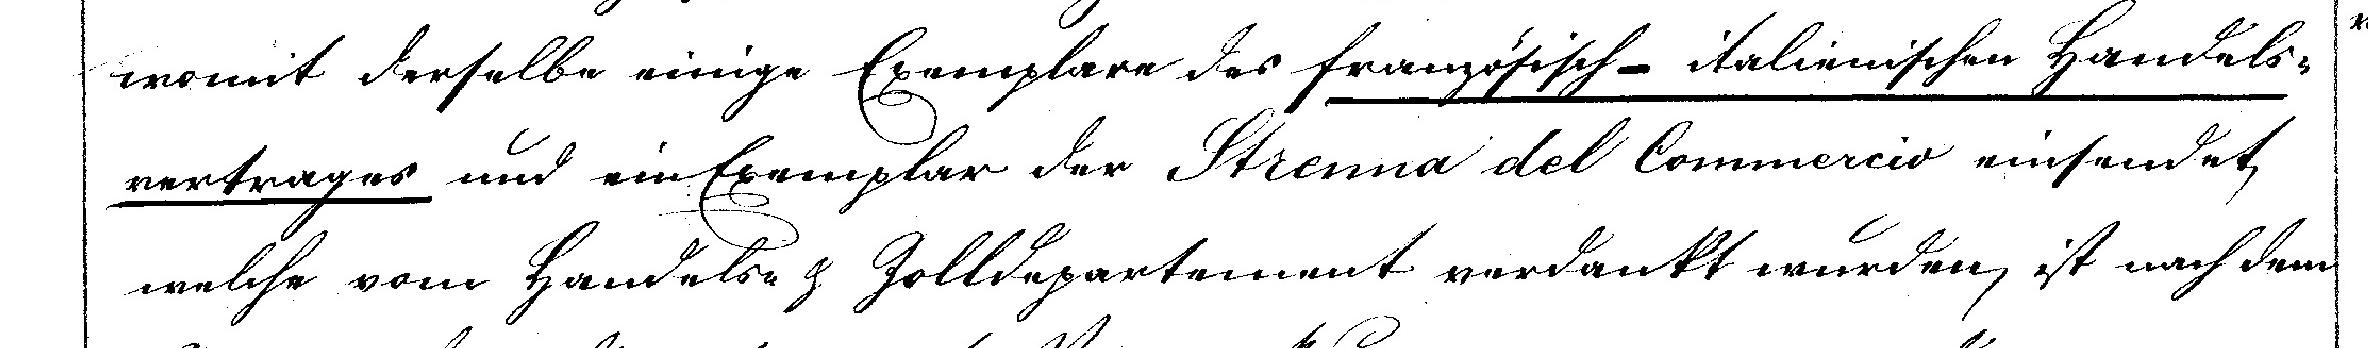 womit derselbe einige Exemplare des französisch-italienischen Handels=
vertrages und ein Exemplar der Strenna del Commercio einsendet,
welche vom Handels= & Zolldepartement verdankt wurden, ist nach dem